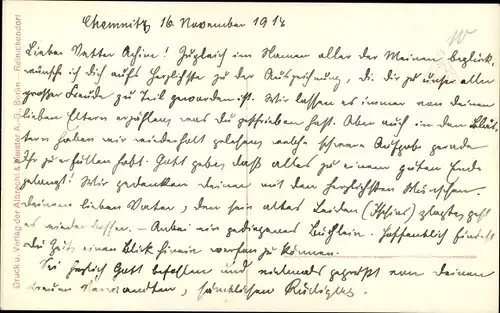 Chemnitz 16. November 1914
Lieber Vetter Achim! Zugleich im Namen aller der Meinen beglück-
wünsche ich Dich aufs Herzlichste zu der Auszeichnung, die dir zu unser aller
grosser Freude zu Teil geworden ist. Wir lassen es immer von deinen
lieben Eltern erzählen, was Du geschrieben hast. Aber auch in den Blät-
tern haben wir wiederholt gelesen, welche schwere Aufgabe gerade
Ihr zu erfüllen habt. Gott gebe, daß alles zu einem guten Ende
gelangt! Wir gedenken deiner mit den herzlichsten Wünschen.
Deinem lieben Vater, den sein altes Leiden (Ischias) plagte, geht
es wieder besser. – Anbei ein gediegenes Büchlein. Hoffentlich findest
Du Zeit einen Blick hinein werfen zu können.
Sei herzlich Gott befohlen und vielmals gegrüßt von Deinen
treuen Verwandten, sämtlichen
Druck u. Verlag der Albrecht & Meister A.-G., Berlin - Reinickendorf